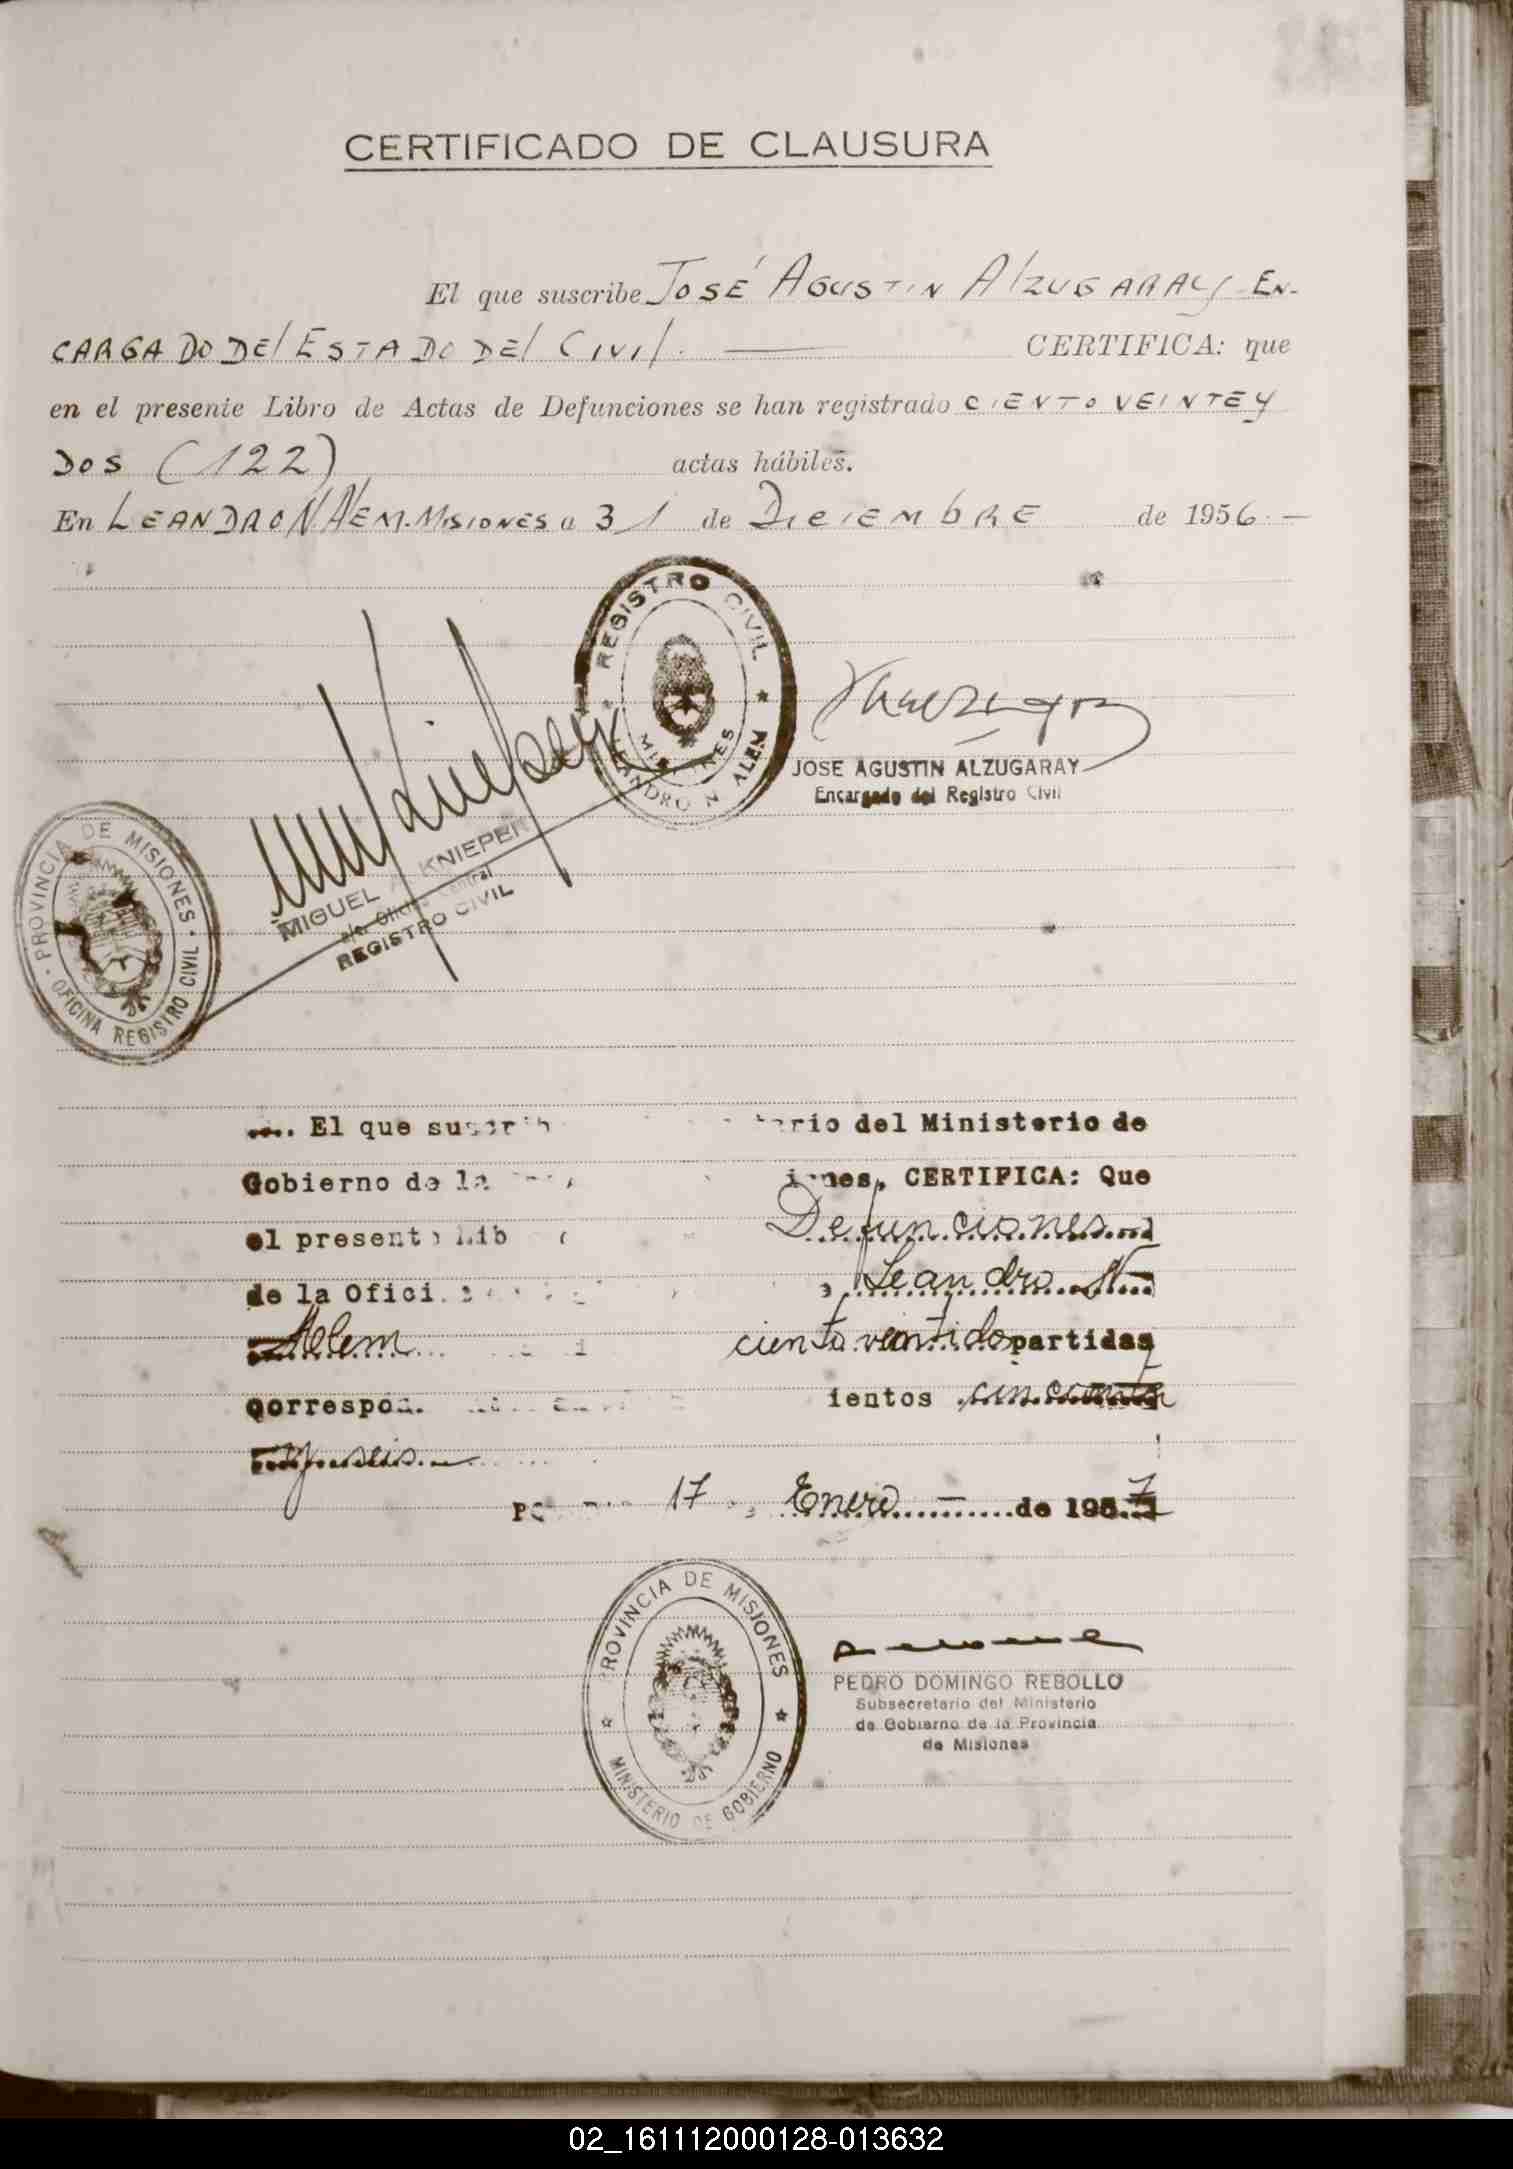 CERTIFICADO DE CLAUSURA
El que suscribe JOSÉ AGUSTIN AlZUGARAY EN-
CARGADO DEl ESTADO DEl CIVIl. CERTIFICA: que
en el presente Libro de Actas de Defunciones se han registrado CIENTO VEINTE Y
DOS (122) actas hábiles.
En LEANDRO N AlEM. MISIONES a 31 de DICIEMbRE de 1956.-
REGISTRO CIVIL
MISIONES
LEANDRO N ALEM
JOSE AGUSTIN ALZUGARAY
Encargado del Registro Civil
Knieper
MIGUEL A. KNIEPER
a/c. Oficina Central
REGISTRO CIVIL
PROVINCIA DE MISIONES
OFICINA REGISTRO CIVIL
El que suscrib rio del Ministerio de
Gobierno de la iones, CERTIFICA: Que
el presente Lib Defunciones
de la Ofici Leandro N
Alem ciento veintidos partidas
correspon ientos cincuenta
y seis.-
17 Enero - de 1957
PROVINCIA DE MISIONES
MINISTERIO DE GOBIERNO
PEDRO DOMINGO REBOLLO
Subsecretario del Ministerio
de Gobierno de la Provincia
de Misiones
02_161112000128-013632